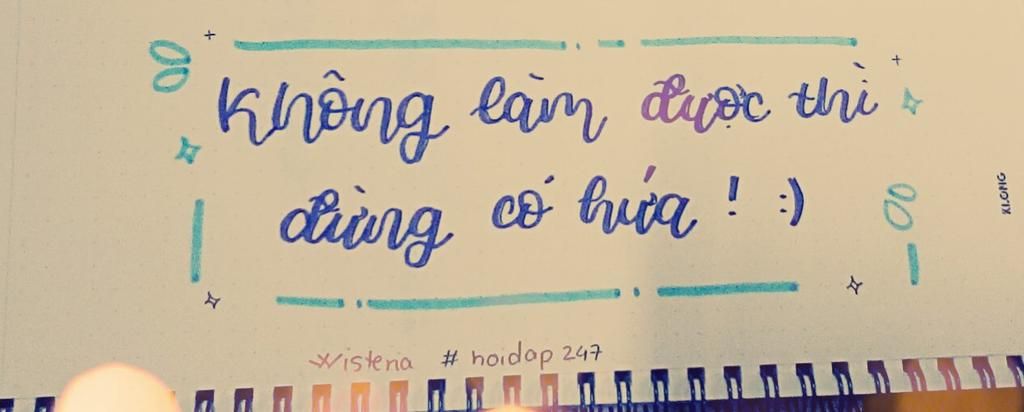 Không làm được thì
đừng có hứa ! :)
Wisteria # hoidap 247
XI.ONG